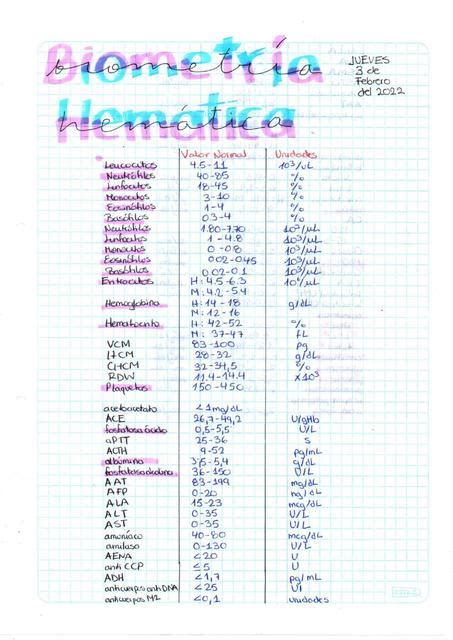 Biometría
Hemática
JUEVES
3 de
Febrero
del 2022
Valor Normal Unidades
Leucocitos 4.5-11 10³/uL
Neutrófilos 40-85 %
Linfocitos 18-45 %
Monocitos 3-10 %
Eosinófilos 1-4 %
Basófilos 0.3-4 %
Neutrófilos 1.80-7.70 10³/uL
Linfocitos 1-4.8 10³/uL
Monocitos 0-0.8 10³/uL
Eosinófilos 0.02-0.45 10³/uL
Basófilos 0.02-0.1 10³/uL
Eritrocitos H: 4.5-6.3 10⁶/uL
M: 4.2-5.4
Hemoglobina H: 14-18 g/dL
M: 12-16
Hematocrito H: 42-52 %
M: 37-47 fL
VCM 83-100 pg
HCM 28-32 g/dL
CHCM 32-34,5 %
RDW 11.4-14.4 x10³
Plaquetas 150-450
acetoacetato <1mg/dL
ACE 26,7-49,2 U/gHb
fosfatasa ácido 0,5-5,5 U/L
aPTT 25-36 s
ACTH 9-52 pg/mL
albúmina 3,5-5,4 g/dL
fosfatasa alcalina 36-150 U/L
AAT 83-199 mg/dL
AFP 0-20 ng/dL
ALA 15-23 mcg/dL
ALT 0-35 U/L
AST 0-35 U/L
amoníaco 40-80 mcg/dL
amilasa 0-130 U/L
AENA <20 U
anti CCP ≤5 U
ADH <1,7 pg/mL
anticuerpos anti DNA <25 UI
anticuerpos M2 <0,1 unidades